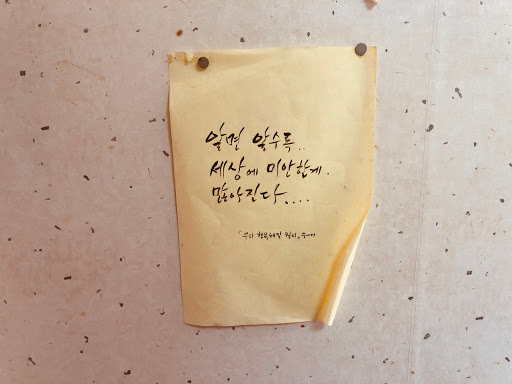 알면 알수록..
세상에 미안한게.
많아진다....
「우리 행복해질 권리」중에서